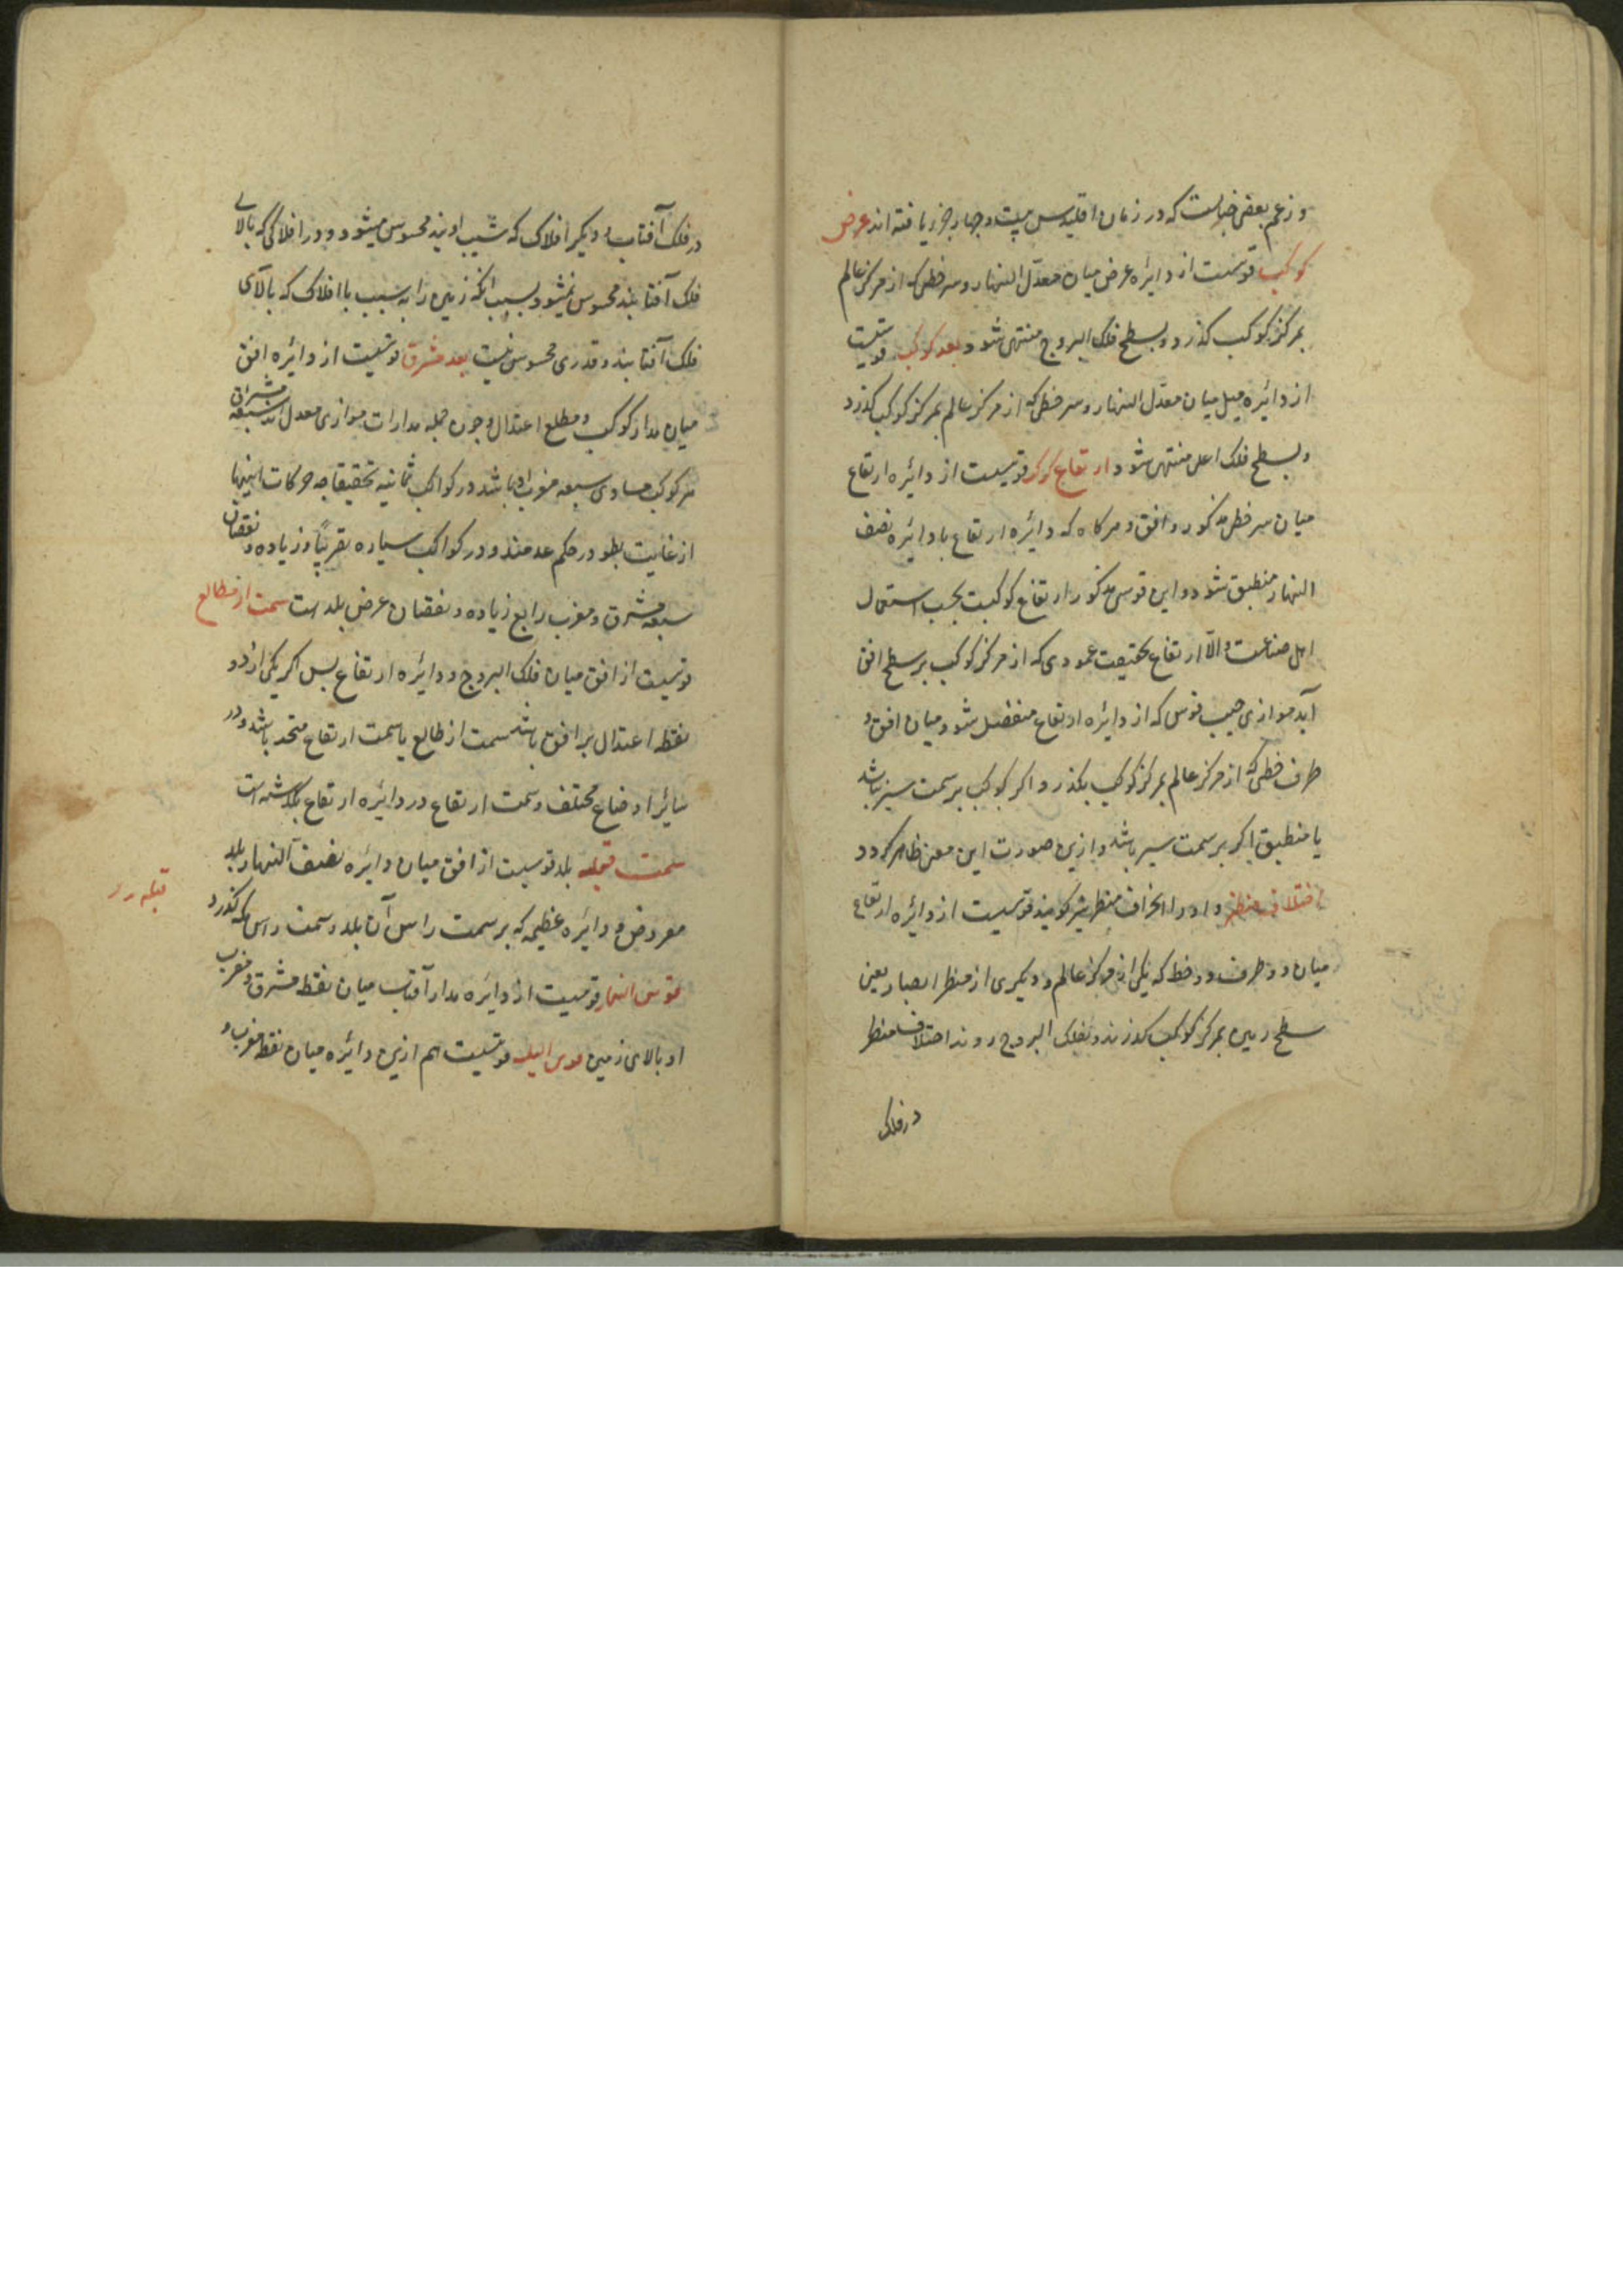 و زعم بعضی چنانست که در زمان اقلیدس بیست و چهار جزو یافته اند عرض
کوکب قوسیست از دایره عرض میان معدل النهار و سر خطی که از مرکز عالم
بمرکز کوکب گذرد و بسطح فلک البروج منتهی شود و بعد کوکب قوسیست
از دائره میل میان معدل النهار و سر خطی که از مرکز عالم بمرکز کوکب گذرد
و بسطح فلک اعلی منتهی شود و ارتفاع کوکب قوسیست از دائره ارتفاع
میان سر خطی مذکور و افق و هرکاه که دائره ارتفاع با دائره نصف
النهار منطبق شود و این قوسی مذکور ارتفاع کوکبست بحسب استعمال
اهل صناعت و الّا ارتفاع بحقیقت عمودی که از مرکز کوکب بر سطح افق
آید موازی جیب قوس که از دایره ارتفاع منفصل شود میان افق و
طرف خطی که از مرکز عالم بمرکز کوکب بگذرد اگر کوکب بر سمت سیر نباشد
یا منطبق اگر بر سمت سیر باشد و ازین صورت این معنی ظاهر گردد
اختلاف منظر و او را انحراف منظر نیز گویند قوسیست از دائره ارتفاع
میان دو طرف دو خط که یکی از مرکز عالم و دیگری از منظر ابصار یعنی
سطح زمین بمرکز کوکب گذرند و بفلک البروج روند اختلاف منظر
در فلک
در فلک آفتاب و دیگر افلاک که شیب اویند محسوس میشود و در افلاکی که بالای
فلک آفتابند محسوس نمیشود بسبب آنکه زمین را به نسبت با افلاک که بالای
فلک آفتابند قدری محسوس نیست بعد مشرق قوسیست از دائره افق
میان مدار کوکب و مطلع اعتدال و چون جمله مدارات موازی معدل اند سعه مشرق
هر کوکب مساوی سعه مغرب او باشد در کواکب ثابته تحقیقا چه حرکات اینها
از غایت بطو در حکم عدمند و در کواکب سیاره تقریباً و زیاده و نقصان
سعه مشرق و مغرب تابع زیاده و نقصان عرض بلد است سمت از مطالع
قوسیست از افق میان فلک البروج و دائره ارتفاع پس اگر یکی از دو
نقطه اعتدال بر افق باشد سمت از طالع با سمت ارتفاع متحد باشد و در
سائر اوضاع مختلف و سمت ارتفاع در دائره ارتفاع بگذشته است
سمت قبله بلد قوسیست از افق میان دائره نصف النهار بلد
معروض و دائره عظیمه که بر سمت راس آن بلد و سمت راس مکه گذرد
قبله رد
قوس النهار قوسیست از دائره مدار آفتاب میان نقطه مشرق و مغرب
او بالای زمین قوس اللیل قوسیست هم ازین دائره میان نقطه مغرب و